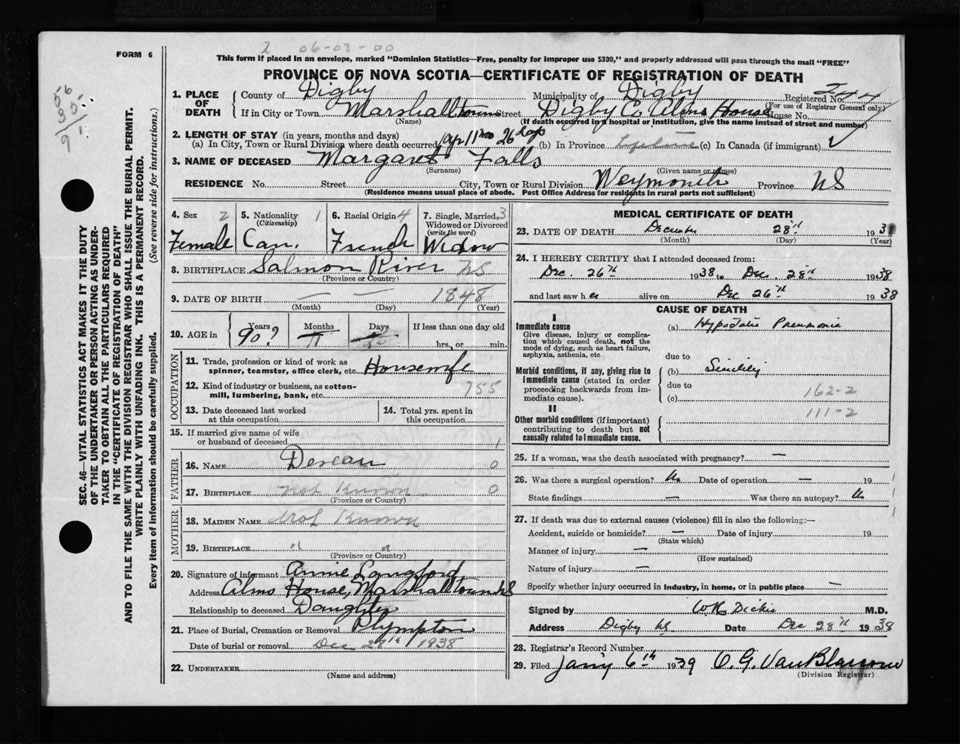 2 06-03-00
FORM 6
This form if placed in an envelope, marked "Dominion Statistics—Free, penalty for improper use $300," and properly addressed will pass through the mail "FREE"
PROVINCE OF NOVA SCOTIA—CERTIFICATE OF REGISTRATION OF DEATH
1. PLACE OF DEATH County of Digby Municipality of Digby Registered No. 244
(For use of Registrar General only)
If in City or Town Marshalltown Street Digby Co. Alms House House No.
(Name) (If death occurred in a hospital or institution, give the name instead of street and number)
2. LENGTH OF STAY (in years, months and days)
(a) In City, Town or Rural Division where death occurred (b) In Province Lifetime (c) In Canada (if immigrant)
3. NAME OF DECEASED Margaret Falls
(Surname) (Given name or names)
RESIDENCE No. Street City, Town or Rural Division Weymouth Province NS
(Residence means usual place of abode. Post Office Address for residents in rural parts not sufficient)
4. Sex 2 Female
5. Nationality 1 (Citizenship) Can.
6. Racial Origin 4 French
7. Single, Married, 3 Widowed or Divorced (write the word) Widow
8. BIRTHPLACE Salmon River NS
(Province or Country)
9. DATE OF BIRTH — — 1848
(Month) (Day) (Year)
10. AGE in Years Months Days If less than one day old
90? hrs. or min.
OCCUPATION
11. Trade, profession or kind of work as spinner, teamster, office clerk, etc. Housewife
12. Kind of industry or business, as cotton-mill, lumbering, bank, etc. 755
13. Date deceased last worked at this occupation
14. Total yrs. spent in this occupation
15. If married give name of wife or husband of deceased 1
FATHER
16. NAME Deveau 0
17. BIRTHPLACE not known 0
(Province or Country)
MOTHER
18. MAIDEN NAME not known
19. BIRTHPLACE " "
(Province or Country)
20. Signature of informant Annie Langford
Address Alms House, Marshalltown NS
Relationship to deceased Daughter
21. Place of Burial, Cremation or Removal Plympton
Date of burial or removal Dec 28th 1938
22. UNDERTAKER
(Name and address)
MEDICAL CERTIFICATE OF DEATH
23. DATE OF DEATH December 28th 1938
(Month) (Day) (Year)
24. I HEREBY CERTIFY that I attended deceased from:
Dec. 26th 1938 to Dec. 28th 1938
and last saw her alive on Dec 26th 1938
CAUSE OF DEATH
I
Immediate cause
Give disease, injury or complication which caused death, not the mode of dying, such as heart failure, asphyxia, asthenia, etc.
(a) Hypostatic Pneumonia
due to
Morbid conditions, if any, giving rise to immediate cause (stated in order proceeding backwards from immediate cause).
(b) Senility
due to
(c) 162-2
111-2
II
Other morbid conditions (if important) contributing to death but not causally related to immediate cause.
25. If a woman, was the death associated with pregnancy? —
26. Was there a surgical operation? No Date of operation — 19 1
State findings — Was there an autopsy? No
27. If death was due to external causes (violence) fill in also the following:—
Accident, suicide or homicide? — Date of injury 19
(State which)
Manner of injury —
(How sustained)
Nature of injury —
Specify whether injury occurred in industry, in home, or in public place —
Signed by W R Dickie M.D.
Address Digby NS Date Dec 28th 1938
28. Registrar's Record Number
29. Filed Jan'y 6th 1939 O. G. VanBlarcom
(Division Registrar)
SEC. 46—VITAL STATISTICS ACT MAKES IT THE DUTY OF THE UNDERTAKER OR PERSON ACTING AS UNDERTAKER TO OBTAIN ALL THE PARTICULARS REQUIRED IN THE "CERTIFICATE OF REGISTRATION OF DEATH"
AND TO FILE THE SAME WITH THE DIVISION REGISTRAR WHO SHALL ISSUE THE BURIAL PERMIT.
WRITE PLAINLY WITH UNFADING INK. THIS IS A PERMANENT RECORD.
Every item of information should be carefully supplied. (See reverse side for instructions.)